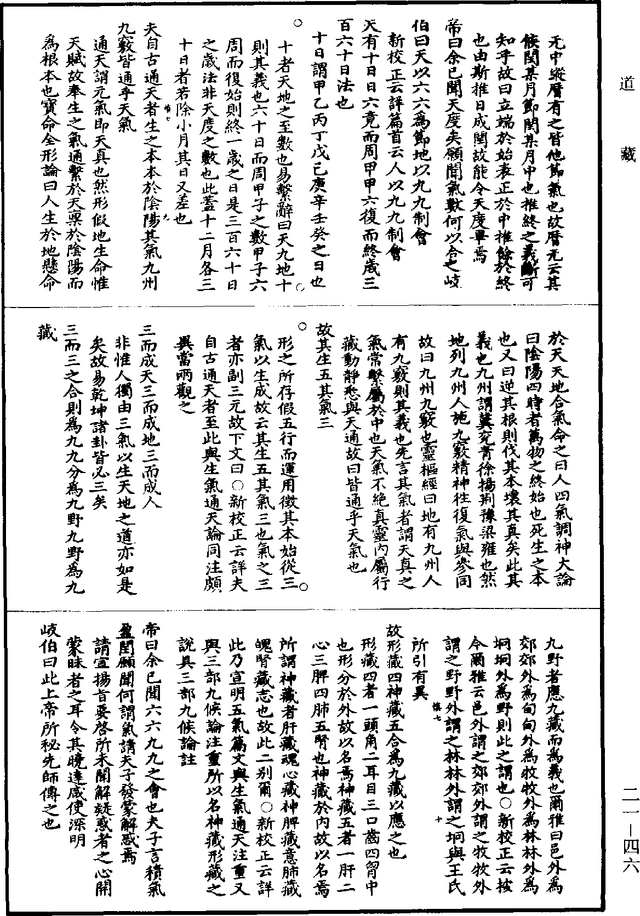 道藏
無中縱曆有之皆他節氣也故曆无云其
候閏某月節閏某月中也推終之義斷可
知乎故曰立端於始表正於中推餘於終
也由斯推日成閏故能令天度畢焉
帝曰余已聞天度矣願聞氣數何以合之岐
伯曰天以六六為節地以九九制會
新校正云詳篇首云人以九九制會
天有十日日六竟而周甲甲六復而終歲三
百六十日法也
十日謂甲乙丙丁戊己庚辛壬癸之日也
十者天地之至數也易繫辭曰天九地十
則其義也六十日而周甲子之數甲子六
周而復始則終一歲之日是三百六十日
之歲法非天度之數也此蓋十二月各三
十日者若除小月其日又差也
夫自古通天者生之本本於陰陽其氣九州
九竅皆通乎天氣
通天謂元氣即天真也然形假地生命惟
天賦故奉生之氣通繫於天稟於陰陽而
為根本也寶命全形論曰人生於地懸命
於天天地合氣命之曰人四氣調神大論
曰陰陽四時者萬物之終始也死生之本
也又曰逆其根則伐其本壞其真矣此其
義也九州謂冀兗青徐揚荊豫梁雍也然
地列九州人施九竅精神往復氣與參同
故曰九州九竅也靈樞經曰地有九州人
有九竅則其義也先言其氣者謂天真之
氣常繫屬於中也天氣不絕真靈內屬行
藏動靜悉與天通故曰皆通乎天氣也
故其生五其氣三
形之所存假五行而運用徵其本始從三
氣以生成故云其生五其氣三也氣之三
者亦副三元故下文曰○新校正云詳夫
自古通天者至此與生氣通天論同注頗
異當兩觀之
三而成天三而成地三而成人
非惟人獨由三氣以生天地之道亦如是
矣故易乾坤諸卦皆必三矣
三而三之合則為九九分為九野九野為九
藏
九野者應九藏而為義也爾雅曰邑外為
郊郊外為甸甸外為牧牧外為林林外為
坰坰外為野則此之謂也○新校正云按
今爾雅云邑外謂之郊郊外謂之牧牧外
謂之野野外謂之林林外謂之坰與王氏
所引有異
故形藏四神藏五合為九藏以應之也
形藏四者一頭角二耳目三口齒四胷中
也形分於外故以名焉神藏五者一肝二
心三脾四肺五腎也神藏於內故以名焉
所謂神藏者肝藏魂心藏神脾藏意肺藏
魄腎藏志也故此二別爾○新校正云詳
此乃宣明五氣篇文與生氣通天注重又
與三部九候論注重所以名神藏形藏之
說具三部九候論註
帝曰余已聞六六九九之會也夫子言積氣
盈閏願聞何謂氣請夫子發蒙解惑焉
請宣揚旨要啓所未聞解疑惑者之心開
蒙昧者之耳令其曉達咸使深明
岐伯曰此上帝所秘先師傳之也
二一—四六